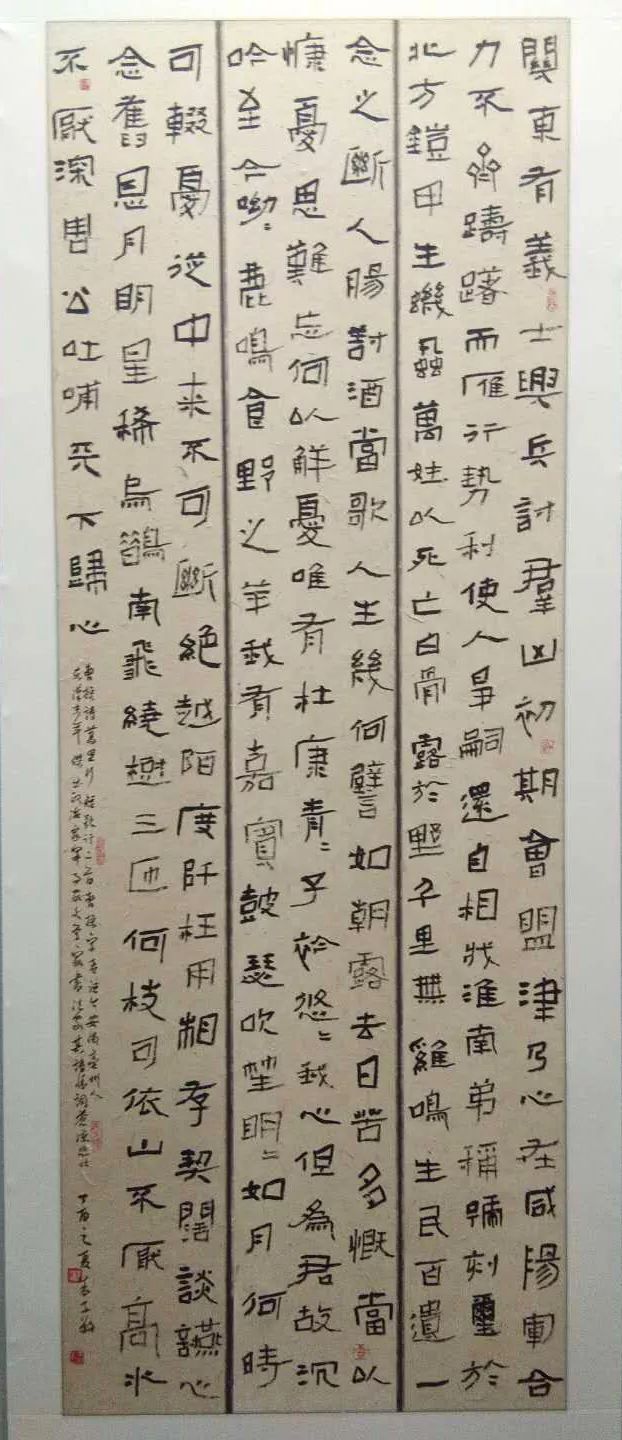 關東有義士興兵討群凶初期會盟津乃心在咸陽軍合
力不齊躊躇而雁行勢利使人爭嗣還自相戕淮南弟稱號刻璽於
北方鎧甲生蟣蝨萬姓以死亡白骨露於野千里無雞鳴生民百遺一
念之斷人腸對酒當歌人生幾何譬如朝露去日苦多慨當以
慷憂思難忘何以解憂唯有杜康青〻子衿悠〻我心但為君故沉
吟至今呦〻鹿鳴食野之苹我有嘉賓鼓瑟吹笙明〻如月何時
可輟憂從中來不可斷絕越陌度阡枉用相存契闊談讌心
念舊恩月明星稀烏鵲南飛繞樹三匝何枝可依山不厭高水
不厭深周公吐哺天下歸心
曹操詩蒿里行短歌行二首曹操字孟德今安徽亳州人
東漢末年傑出政治家軍事家文學家書法家其詩
丁酉之夏